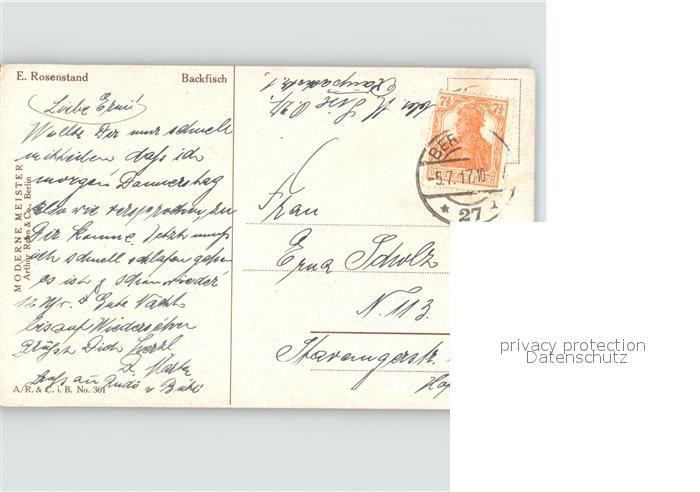 E. Rosenstand
Backfisch
Liebe Erni!
Wollte Dir nur schnell
mittheilen daſs ich
morgen Donnerstag
also wie versprochen zu
Dir komme. Jetzt muſs
ich schnell schlafen gehen
es ist schon wieder
12 Uhr. Gute Nacht
bis auf Wiedersehen
grüſst Dich herzl
D. Martha
A. R. & C. i. B. No. 361
MODERNE MEISTER
Arthur Rehn & Co., Berlin
7½ 7½
BER
-5.7.17.10
* 27
Frau
Erna Scholz
N. 113
Stavangerstr.
privacy protection
Datenschutz